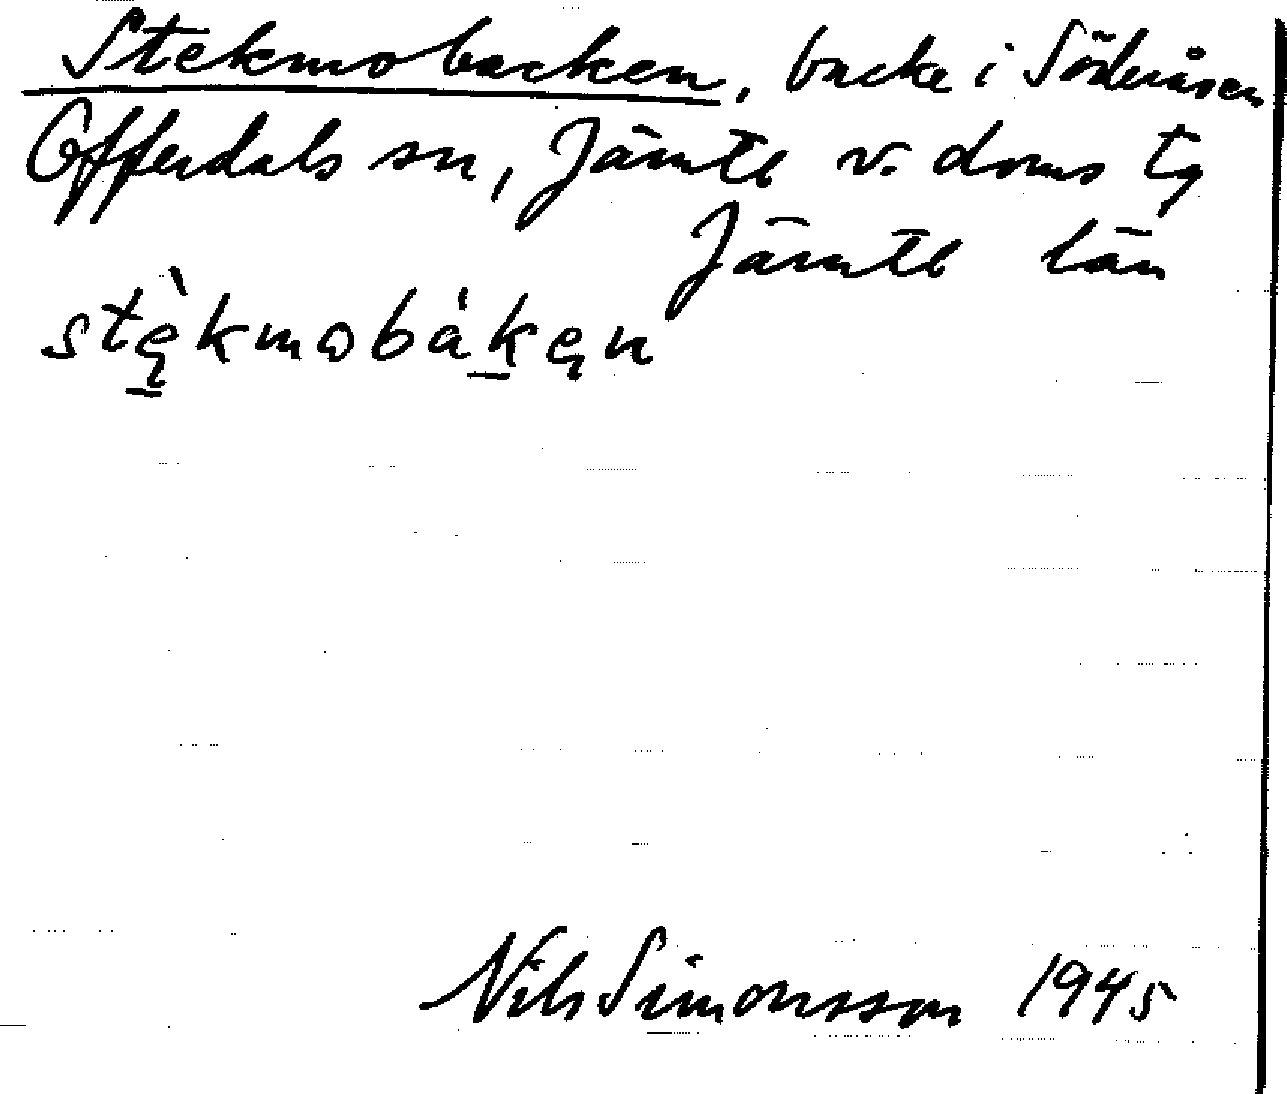 Stekmobacken, backe i Söderåsen
Offerdals sn, Jämtl v. doms tg
Jämtl län
stę̀kmobákęn
Nils Simonsson 1945